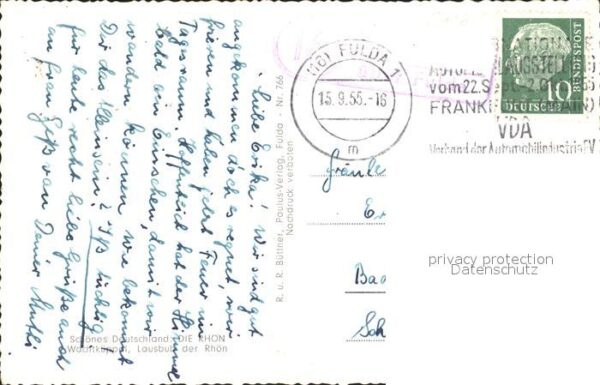 Liebe Erika! Wir sind gut
angekommen doch es regnet, wir
frieren und haben jetzt Feuer im
Tagesraum. Hoffentlich hat der Himmel
bald ein Einsehen, damit wir
wandern können. Wie bekommt
Dir das Alleinsein? Iß tüchtig!
Für heute recht liebe Grüße auch
an Frau von Deiner Mutti
Schönes Deutschland: DIE RHÖN
Wachtküppel, Lausbub der Rhön
R. u. R. Büttner, Paulus-Verlag, Fulda - Nr. 766
Nachdruck verboten
FULDA 1
15.9.55.-16
m
vom 22.S
FRANK
VDA
Verband der Automobilindustrie EV
DEUTSCHE
BUNDESPOST
10
Fräule
Er
Bad
Sch
privacy protection
Datenschutz